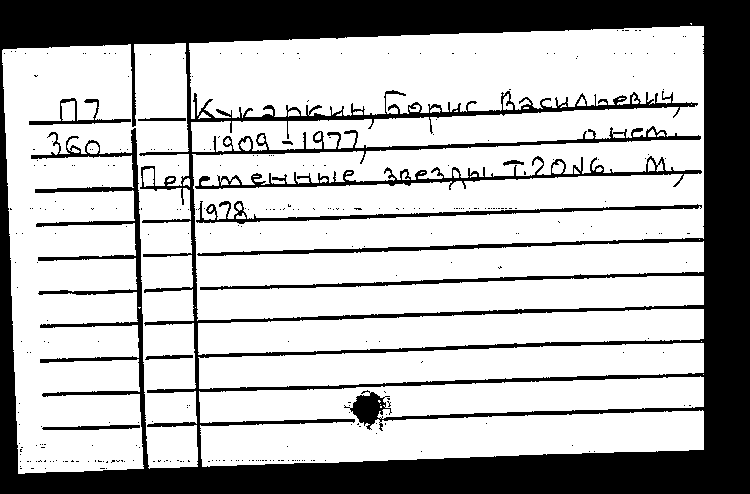 П7 Кукаркин, Борис Васильевич,
360 1909-1977, о нем.
Переменные звезды. Т.20 №6. М.,
1978.